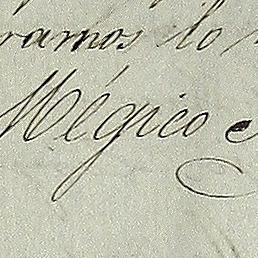 ramos lo
Mégico